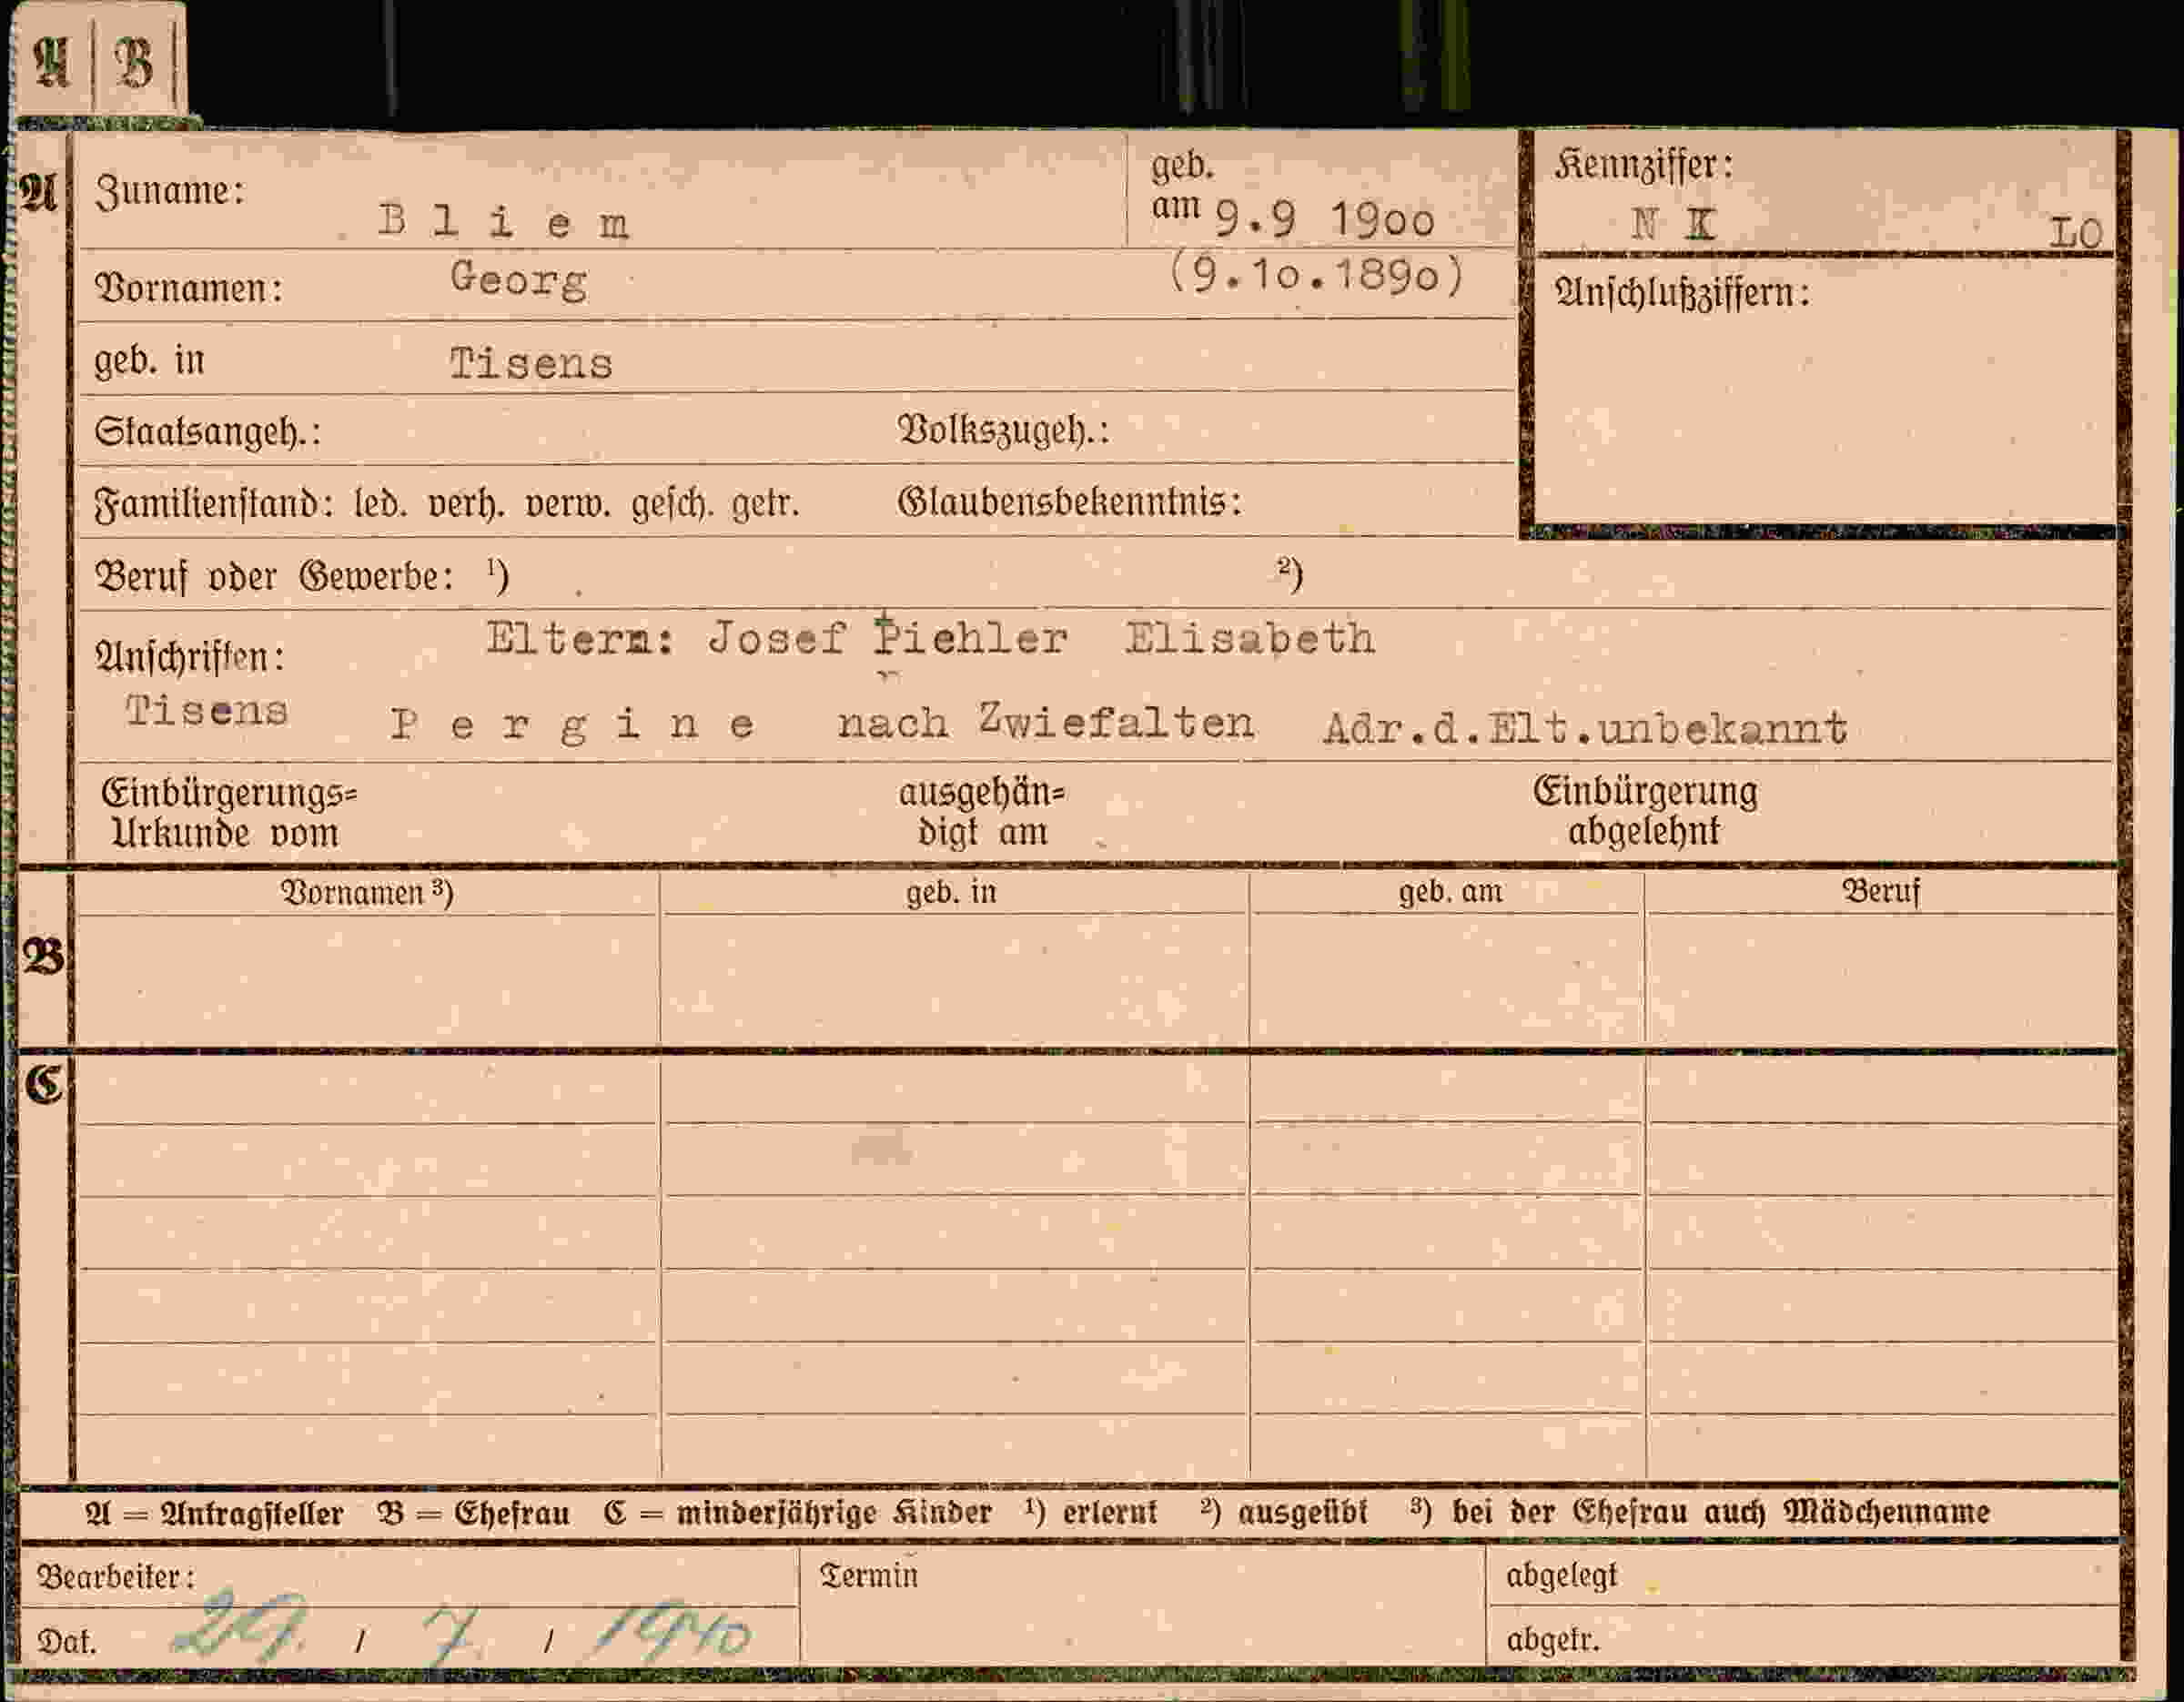 A B
A Zuname: B l i e m geb. am 9.9 1900 Kennziffer: N K LO
Vornamen: Georg (9.10.1890) Anschlußziffern:
geb. in Tisens
Staatsangeh.: Volkszugeh.:
Familienstand: led. verh. verw. gesch. getr. Glaubensbekenntnis:
Beruf oder Gewerbe: ¹) ²)
Anschriften: Eltern: Josef Piehler Elisabeth
Tisens P e r g i n e nach Zwiefalten Adr.d.Elt.unbekannt
Einbürgerungs= ausgehän= Einbürgerung
Urkunde vom digt am abgelehnt
B Vornamen ³) geb. in geb. am Beruf
C
A = Antragsteller B = Ehefrau C = minderjährige Kinder ¹) erlernt ²) ausgeübt ³) bei der Ehefrau auch Mädchenname
Bearbeiter: Termin abgelegt
Dat. 29. / 7. / 1940 abgetr.